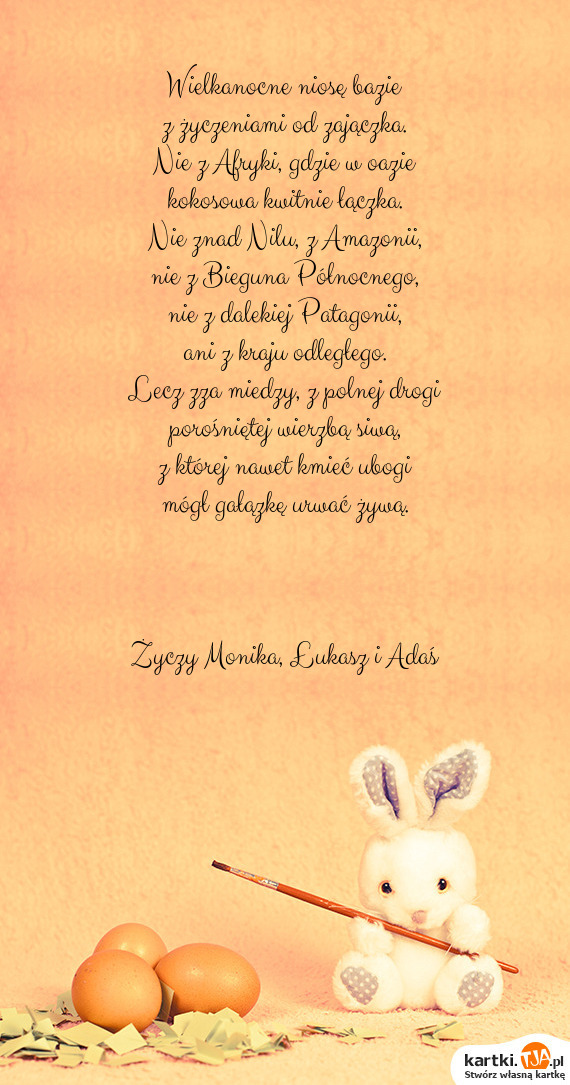 Wielkanocne niosę bazie
z życzeniami od zajączka.
Nie z Afryki, gdzie w oazie
kokosowa kwitnie łączka.
Nie znad Nilu, z Amazonii,
nie z Bieguna Północnego,
nie z dalekiej Patagonii,
ani z kraju odległego.
Lecz zza miedzy, z polnej drogi
porośniętej wierzbą siwą,
z której nawet kmieć ubogi
mógł gałązkę urwać żywą.
Życzy Monika, Łukasz i Adaś
kartki.TJA.pl
Stwórz własną kartkę